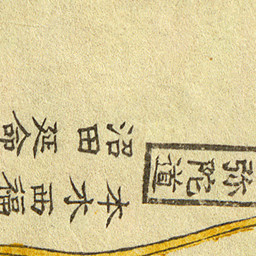 弥陀道
本木西福
沼田延命